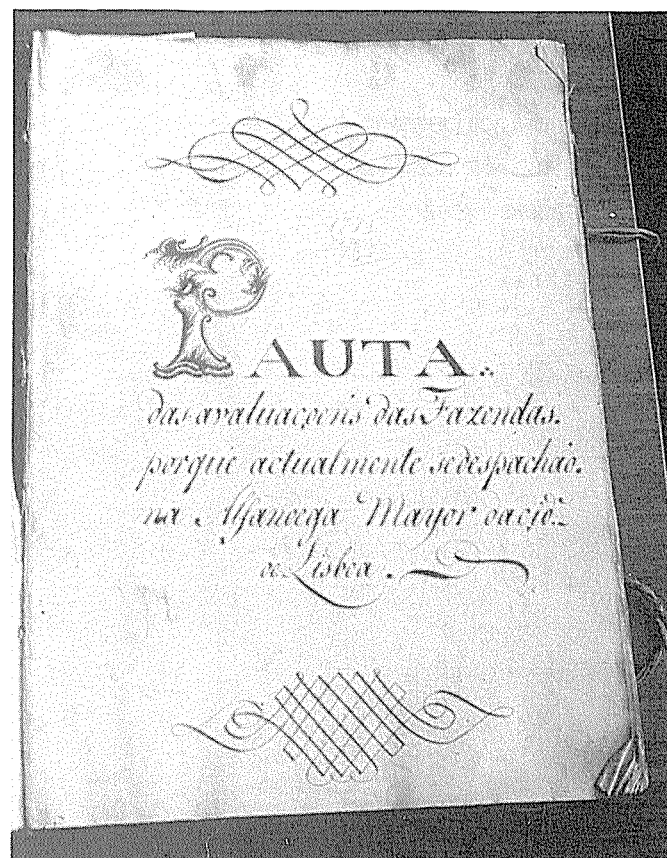 PAUTA.
das avaluaçoens das Fazendas.
porque actualmente sedespachaõ.
na Alfandega Mayor dacid.ᵉ
de Lisboa.